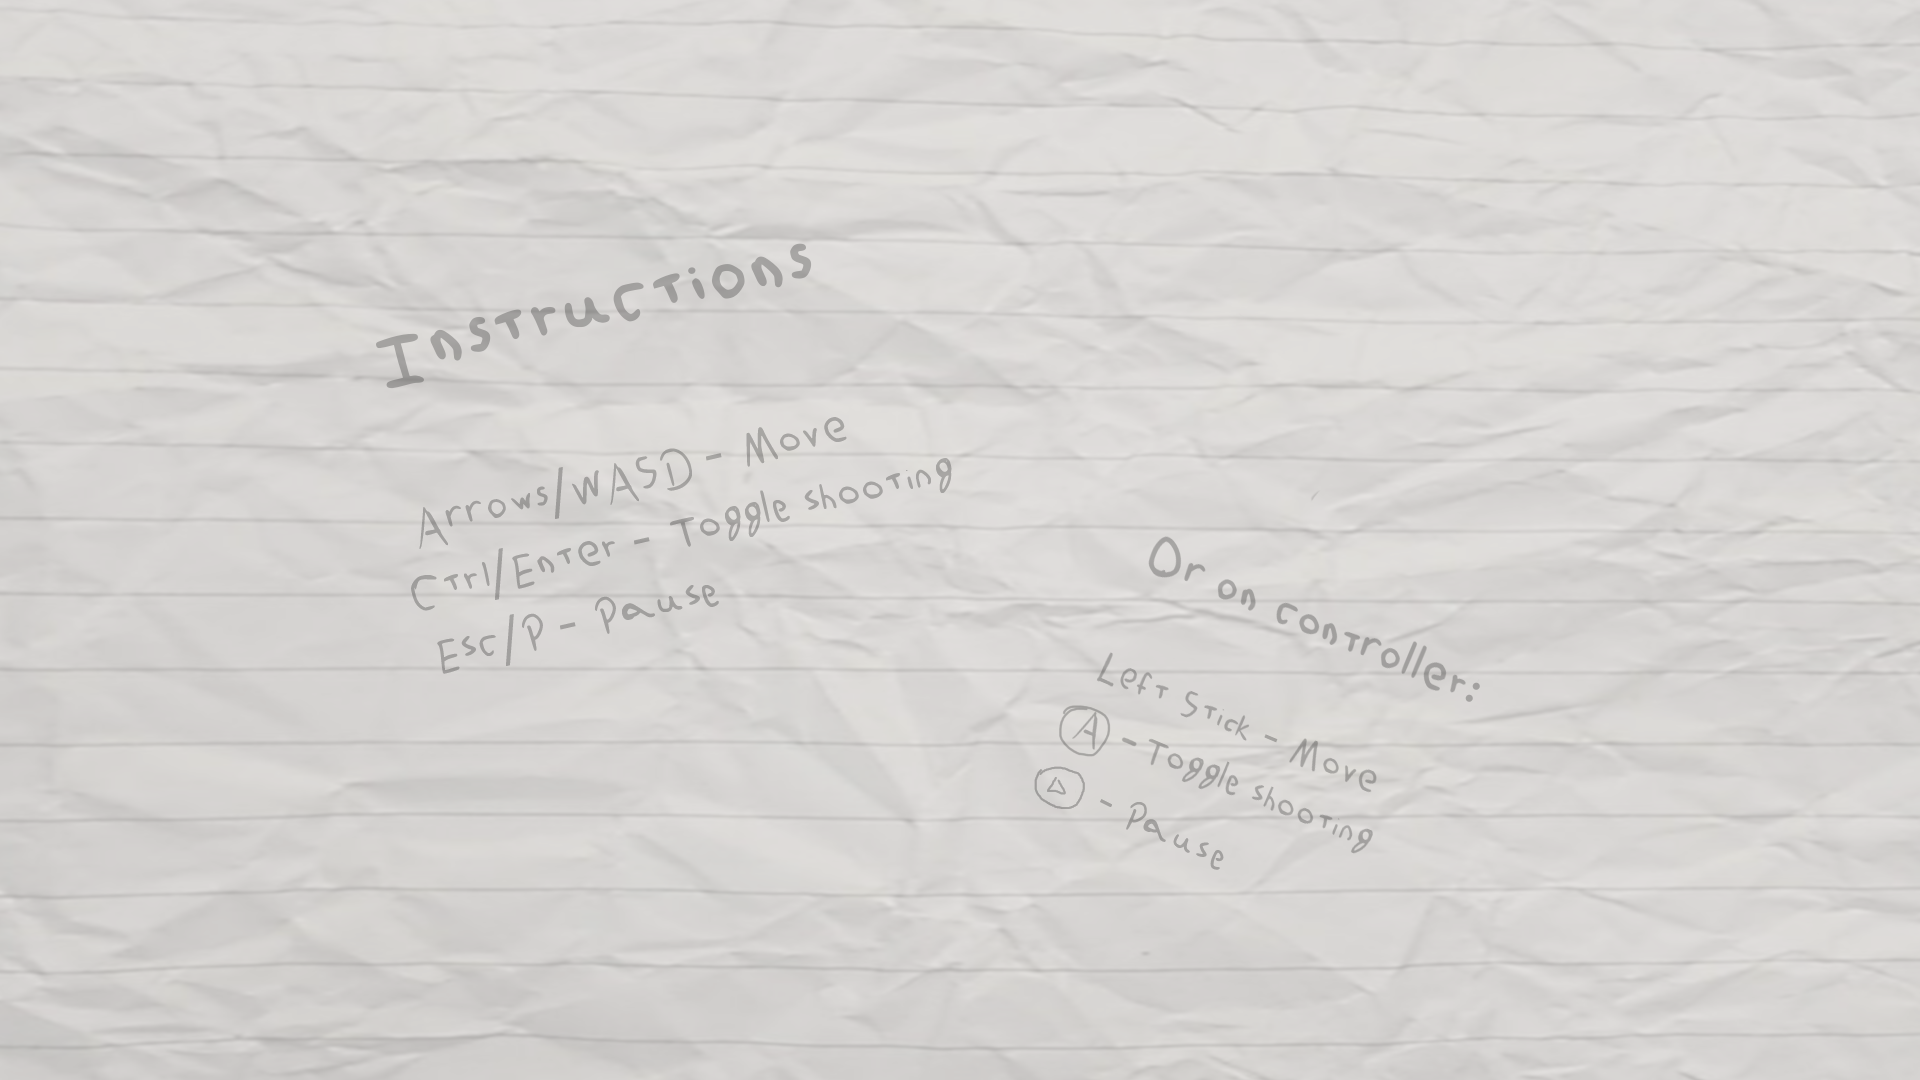 Instructions
Arrows/WASD - Move
Ctrl/Enter - Toggle shooting
Esc/P - Pause
Or on controller:
Left Stick - Move
A - Toggle shooting
△ - Pause